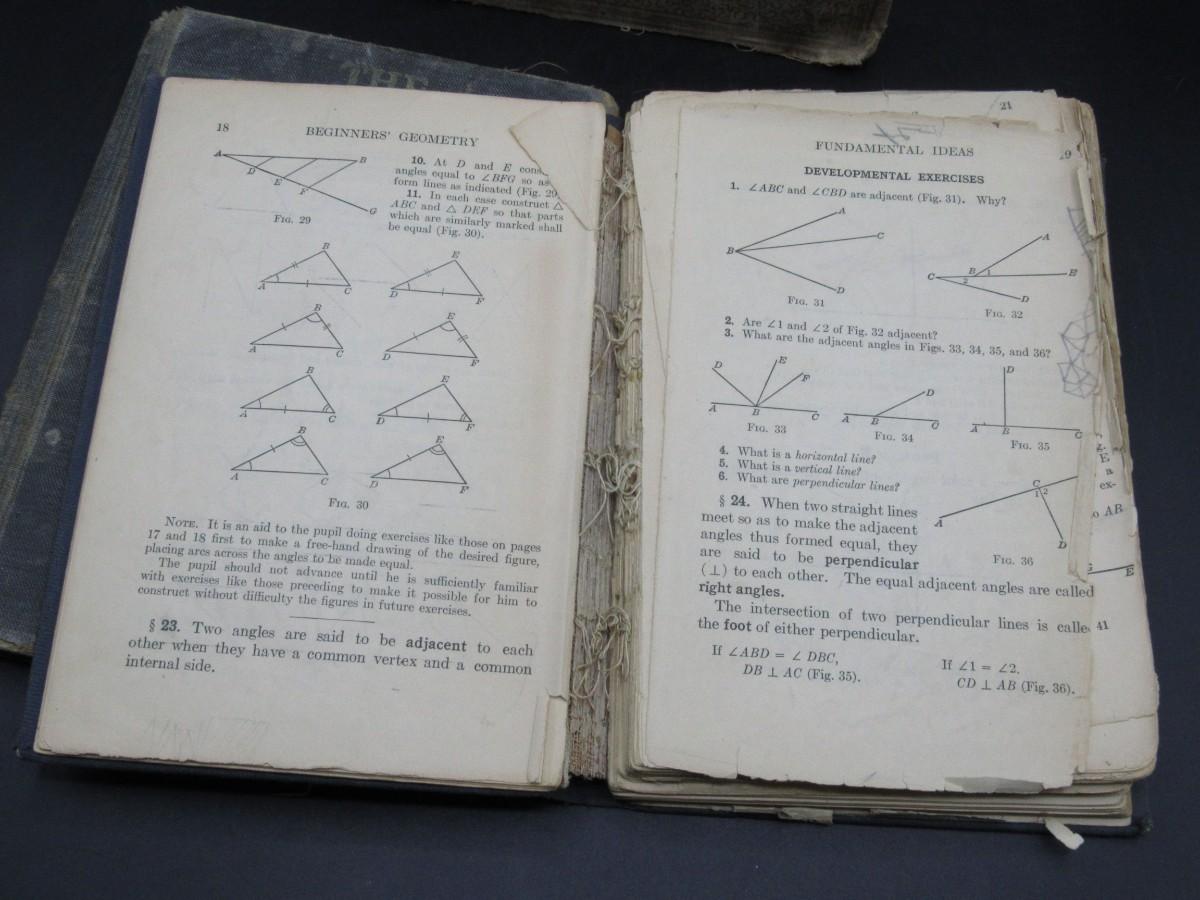 THE
18
BEGINNERS' GEOMETRY
A
B
D
E
F
G
FIG. 29
10. At D and E cons
angles equal to ∠BFG so as
form lines as indicated (Fig. 29
11. In each case construct △
ABC and △ DEF so that parts
which are similarly marked shall
be equal (Fig. 30).
B
A
C
E
D
F
B
A
C
E
D
F
B
A
C
E
D
F
B
A
C
E
D
F
FIG. 30
NOTE. It is an aid to the pupil doing exercises like those on pages
17 and 18 first to make a free-hand drawing of the desired figure,
placing arcs across the angles to be made equal.
The pupil should not advance until he is sufficiently familiar
with exercises like those preceding to make it possible for him to
construct without difficulty the figures in future exercises.
§ 23. Two angles are said to be adjacent to each
other when they have a common vertex and a common
internal side.
21
FUNDAMENTAL IDEAS
19
DEVELOPMENTAL EXERCISES
1. ∠ABC and ∠CBD are adjacent (Fig. 31). Why?
A
C
B
D
FIG. 31
A
C
B
1
E
2
D
FIG. 32
2. Are ∠1 and ∠2 of Fig. 32 adjacent?
3. What are the adjacent angles in Figs. 33, 34, 35, and 36?
D
E
F
A
B
C
FIG. 33
D
A
B
C
FIG. 34
D
A
B
C
FIG. 35
4. What is a horizontal line?
5. What is a vertical line?
6. What are perpendicular lines?
C
1 2
A
D
FIG. 36
§ 24. When two straight lines
meet so as to make the adjacent
angles thus formed equal, they
are said to be perpendicular
(⊥) to each other. The equal adjacent angles are called
right angles.
The intersection of two perpendicular lines is calle
the foot of either perpendicular.
If ∠ABD = ∠ DBC,
DB ⊥ AC (Fig. 35).
If ∠1 = ∠2.
CD ⊥ AB (Fig. 36).
E
a
ex-
AB
E
41